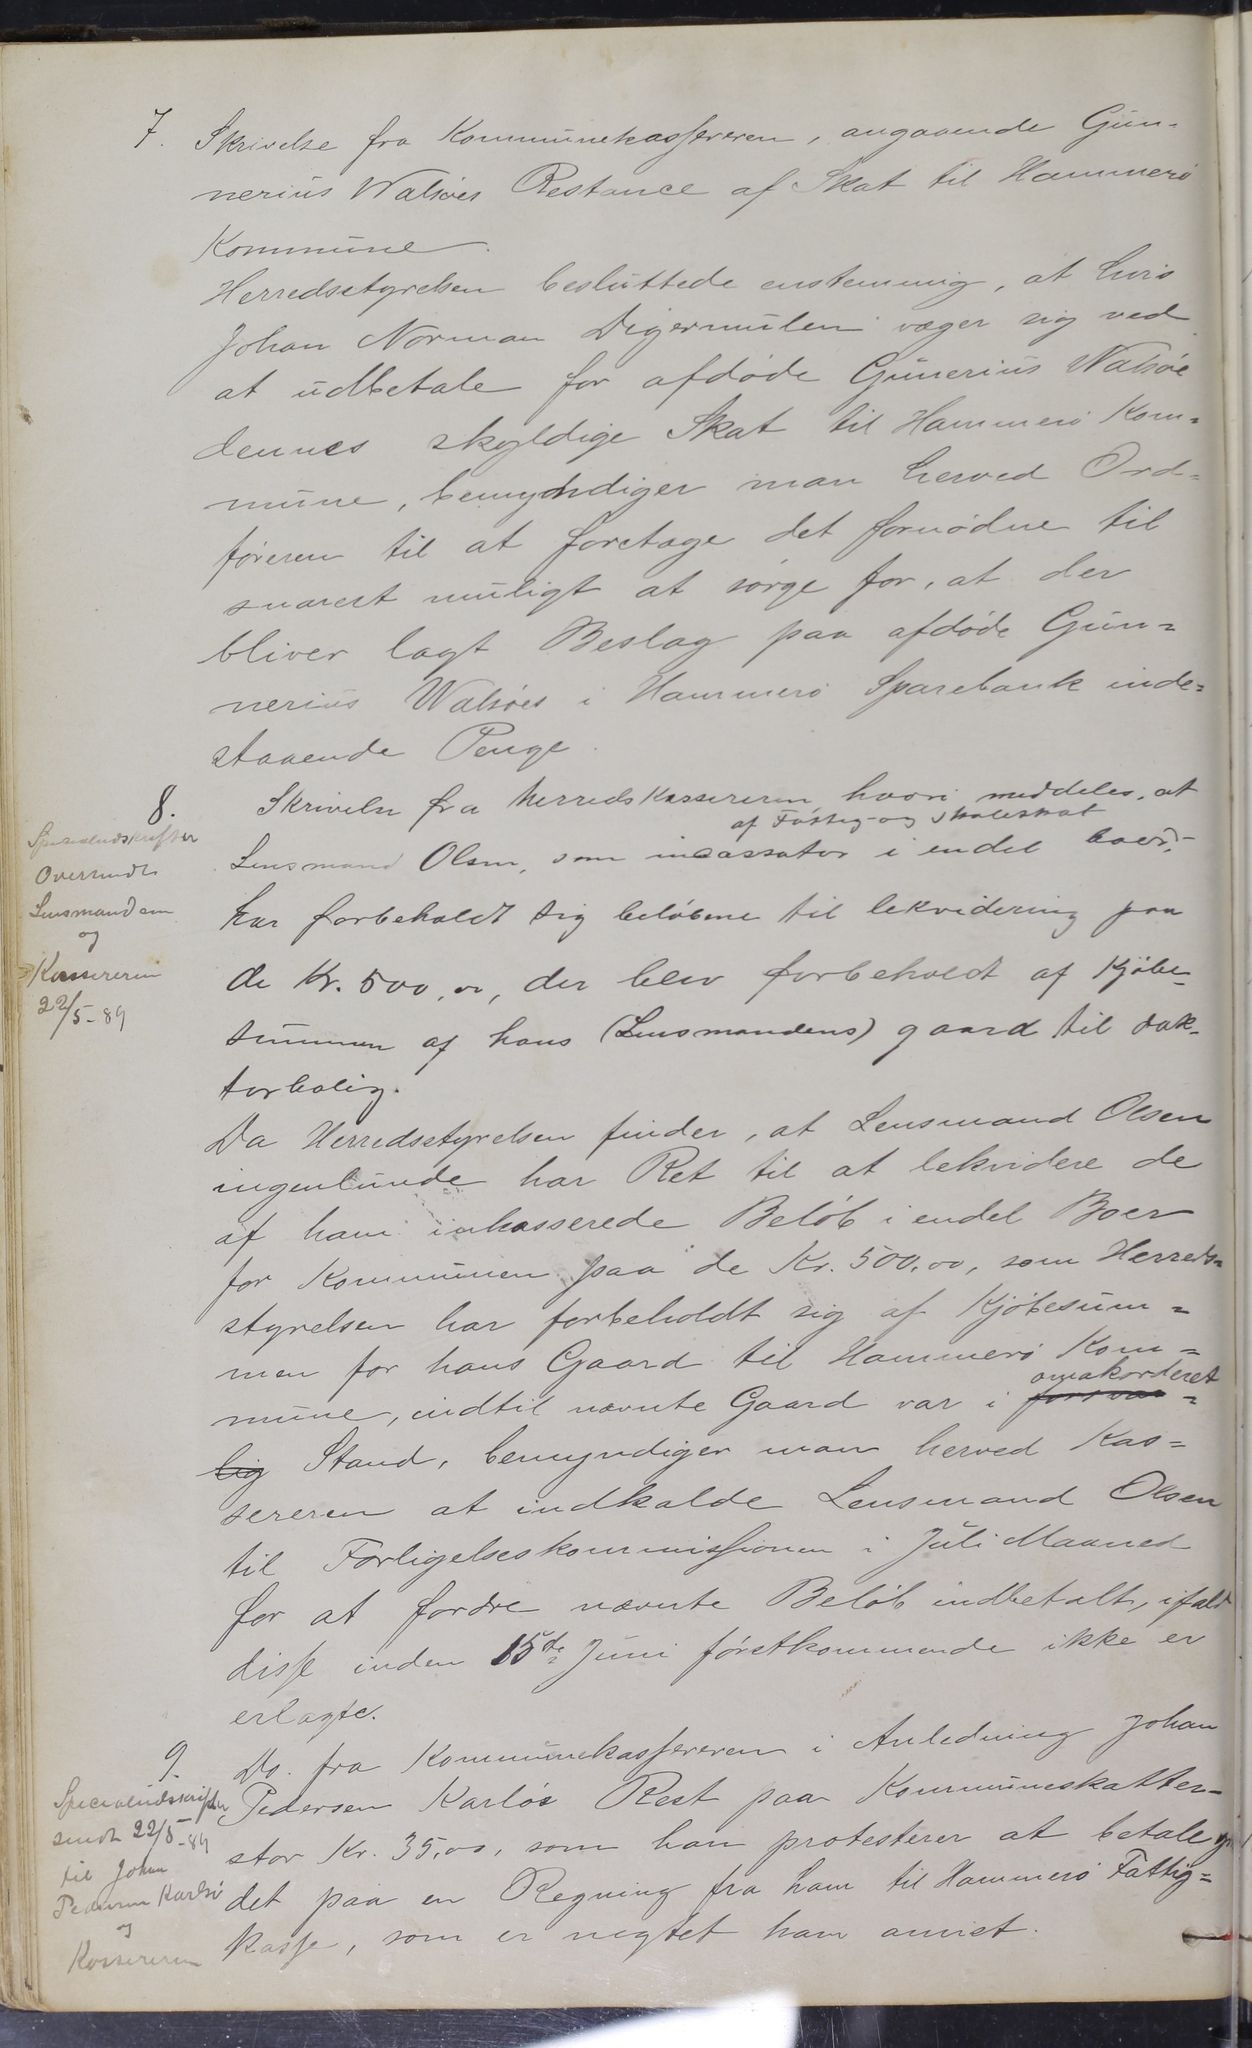 7. Skrivelse fra Kommunekassereren, angaaende Gun-
nerius Walsöes Restance af Skat til Hammerö
Kommune.
Herredsstyrelsen besluttede enstemmig, at hvis
Johan Norman Digermulen væger sig ved
at udbetale for afdöde Gunerius Walsöe
dennes skyldige Skat til Hammerö Kom-
mune, bemyndiger man herved Ord-
föreren til at foretage det fornödne til
snarest muligt at sörge for, at der
bliver lagt Beslag paa afdöde Gun-
nerius Walsöes i Hammerö Sparebank inde-
staaende Penge.
8. Skrivelse fra Herredskassereren hvori meddeles, at
af Fattig- og Skoleskat
Lensmand Olsen, som incassator i endel boer,
har forbeholdt sig belöbene til lekvidering paa
de Kr. 500,00, der blev forbeholdt af Kjöbe-
summen af hans (Lensmandens) gaard til dok-
torbolig.
Specialudskrifter
Oversendt
Lensmanden
og
Kassereren
22/5-89
Da Herredsstyrelsen finder, at Lensmand Olsen
ingenlunde har Ret til at lekvidere de
af ham inkasserede Belöb i endel Boer
for Kommunen paa de Kr. 500,00, som Herreds-
styrelsen har forbeholdt sig af Kjöbesum-
men for hans Gaard til Hammerö Kom-
omakorderet
mune, indtil nævnte Gaard var i forsvar-
lig Stand, bemyndiger man herved Kas-
sereren at indkalde Lensmand Olsen
til Forligelseskommissionen i Juli Maaned
for at fordre nævnte Belöb indbetalt, ifald
disse inden 15de Juni förstkommende ikke er
erlagte.
9. Do. fra Kommunekassereren i Anledning Johan
Pedersen Karlöe Rest paa Kommuneskatten
stor Kr. 35,00, som han protesterer at betale
det paa en Regning fra ham til Hammerö Fattig-
kasse, som er negtet ham anvist.
Specialudskrifter
sendt 22/5-89
til Johan
Pedersen Karlsö
og
Kassereren